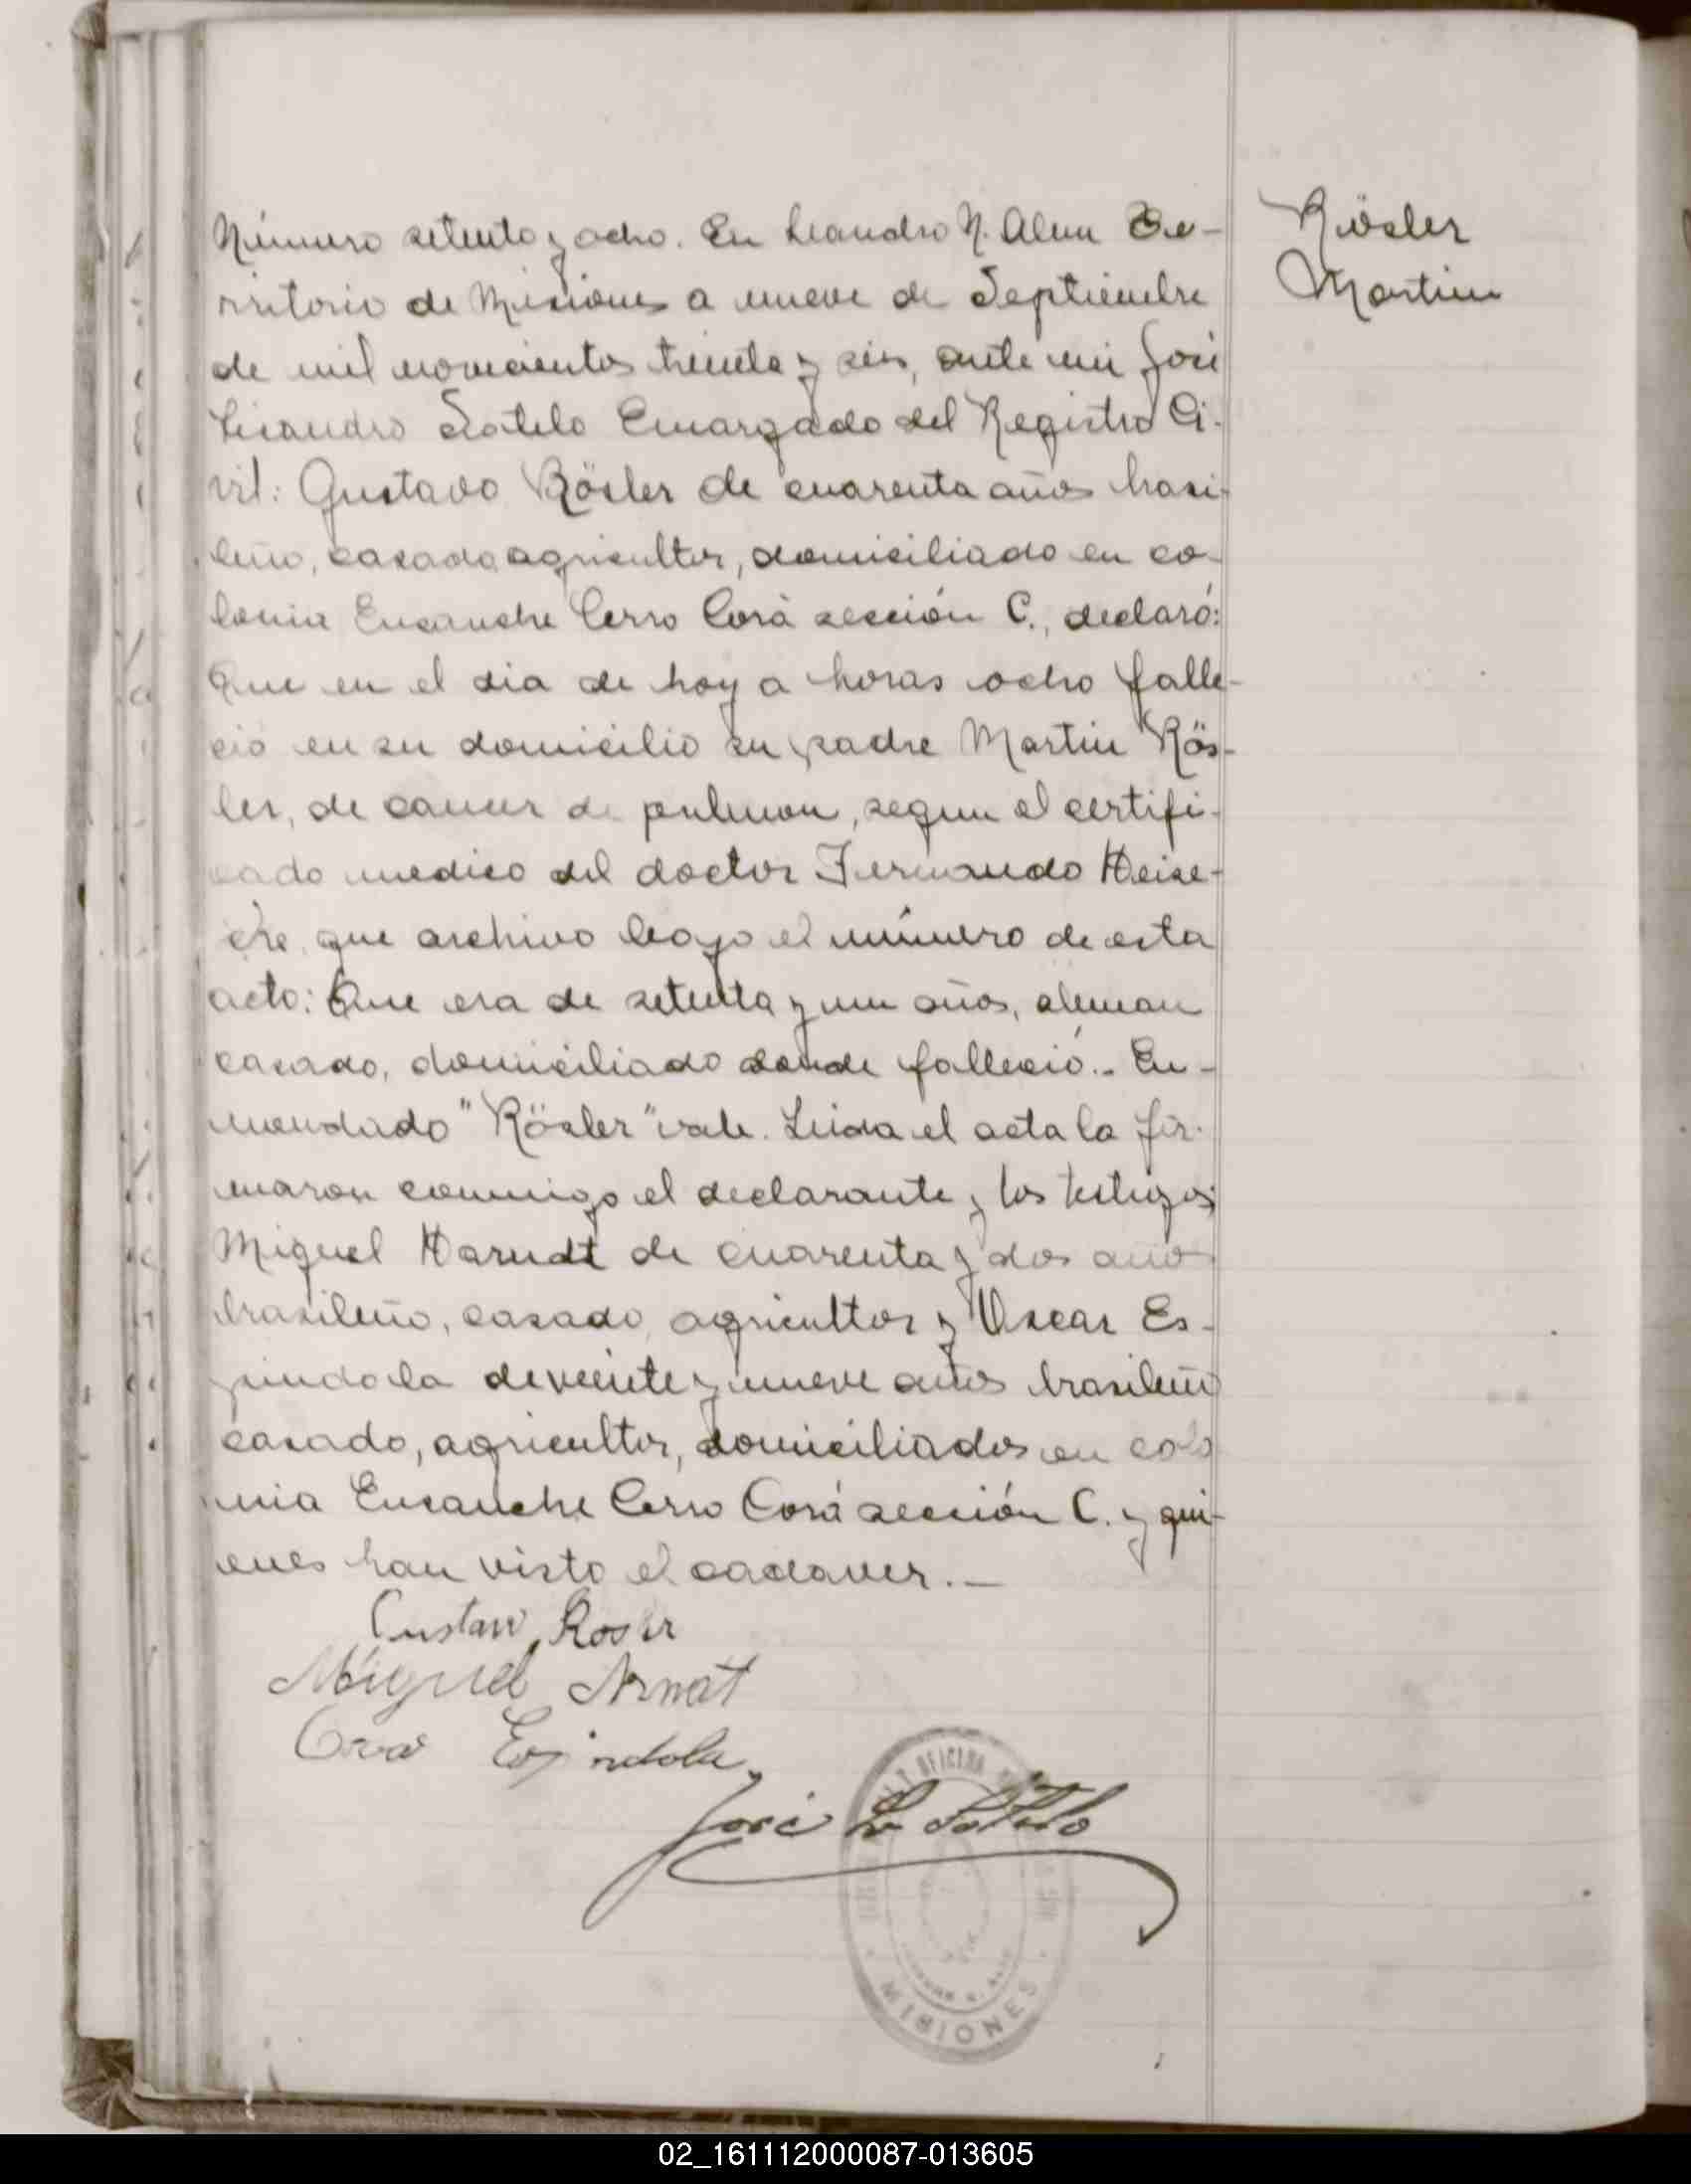 Número setenta y ocho. En Leandro N. Alem Te-
rritorio de Misiones a nueve de Septiembre
de mil novecientos treinta y seis, ante mi José
Lisandro Sotelo Encargado del Registro Ci-
vil: Gustavo Rösler de cuarenta años brasi-
leño, casado agricultor, domiciliado en co-
lonia Ensanche Cerro Corá sección C., declaró:
Que en el dia de hoy a horas ocho falle-
ció en su domicilio su padre Martin Rös-
ler, de cancer de pulmon, segun el certifi-
cado medico del doctor Fernando
que archivo bajo el número de esta
acto: Que era de setenta y un años, aleman
casado, domiciliado donde falleció.- En-
mendado "Rösler" vale. Leida el acta la fir-
maron conmigo el declarante y los testigos;
Miguel Harndt de cuarenta y dos años
brasileño, casado, agricultor y Oscar Es-
pindola de veinte y nueve años brasileño
casado, agricultor, domiciliados en colo
nia Ensanche Cerro Corá sección C. y qui-
enes han visto el cadaver.-
Gustav Rosler
Miguel Arnat
Espindola
José L. Sotelo
OFICINA
MISIONES
Rösler
Martin
02_161112000087-013605